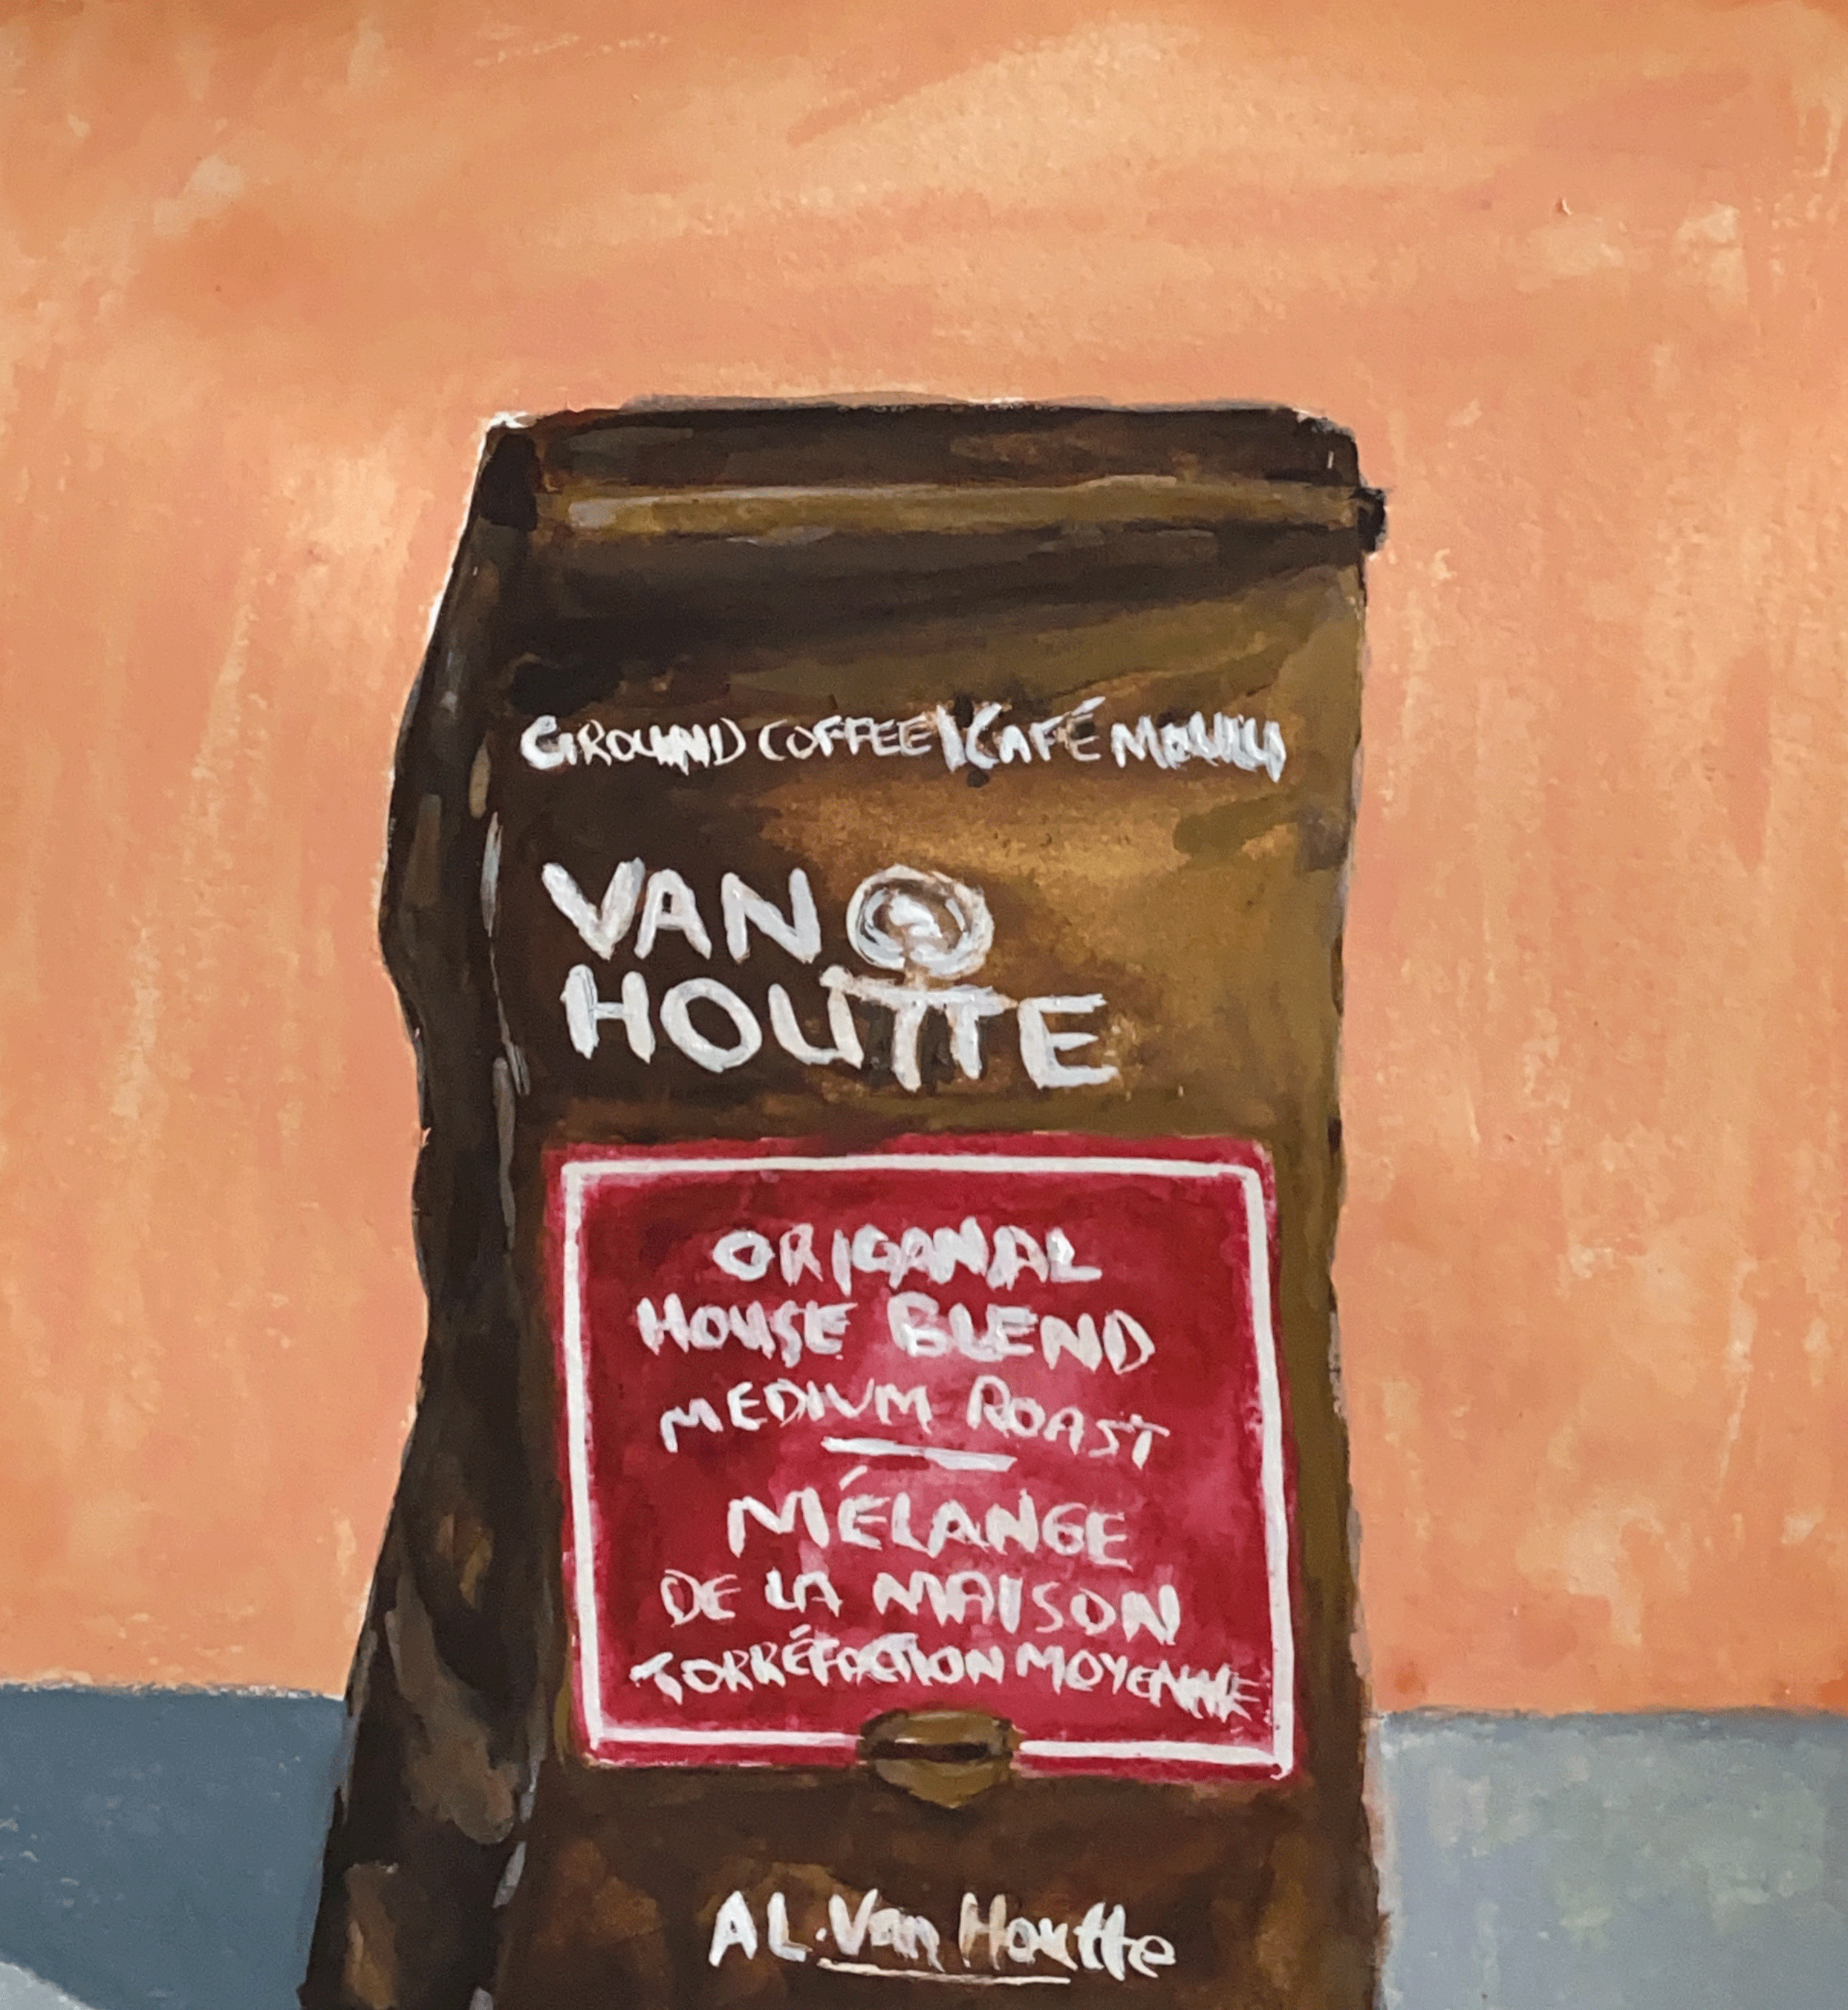 GROUND COFFEE | CAFÉ MOULU
VAN
HOUTTE
ORIGANAL
HOUSE BLEND
MEDIUM ROAST
MÉLANGE
DE LA MAISON
TORRÉFACTION MOYENNE
A.L. Van Houtte